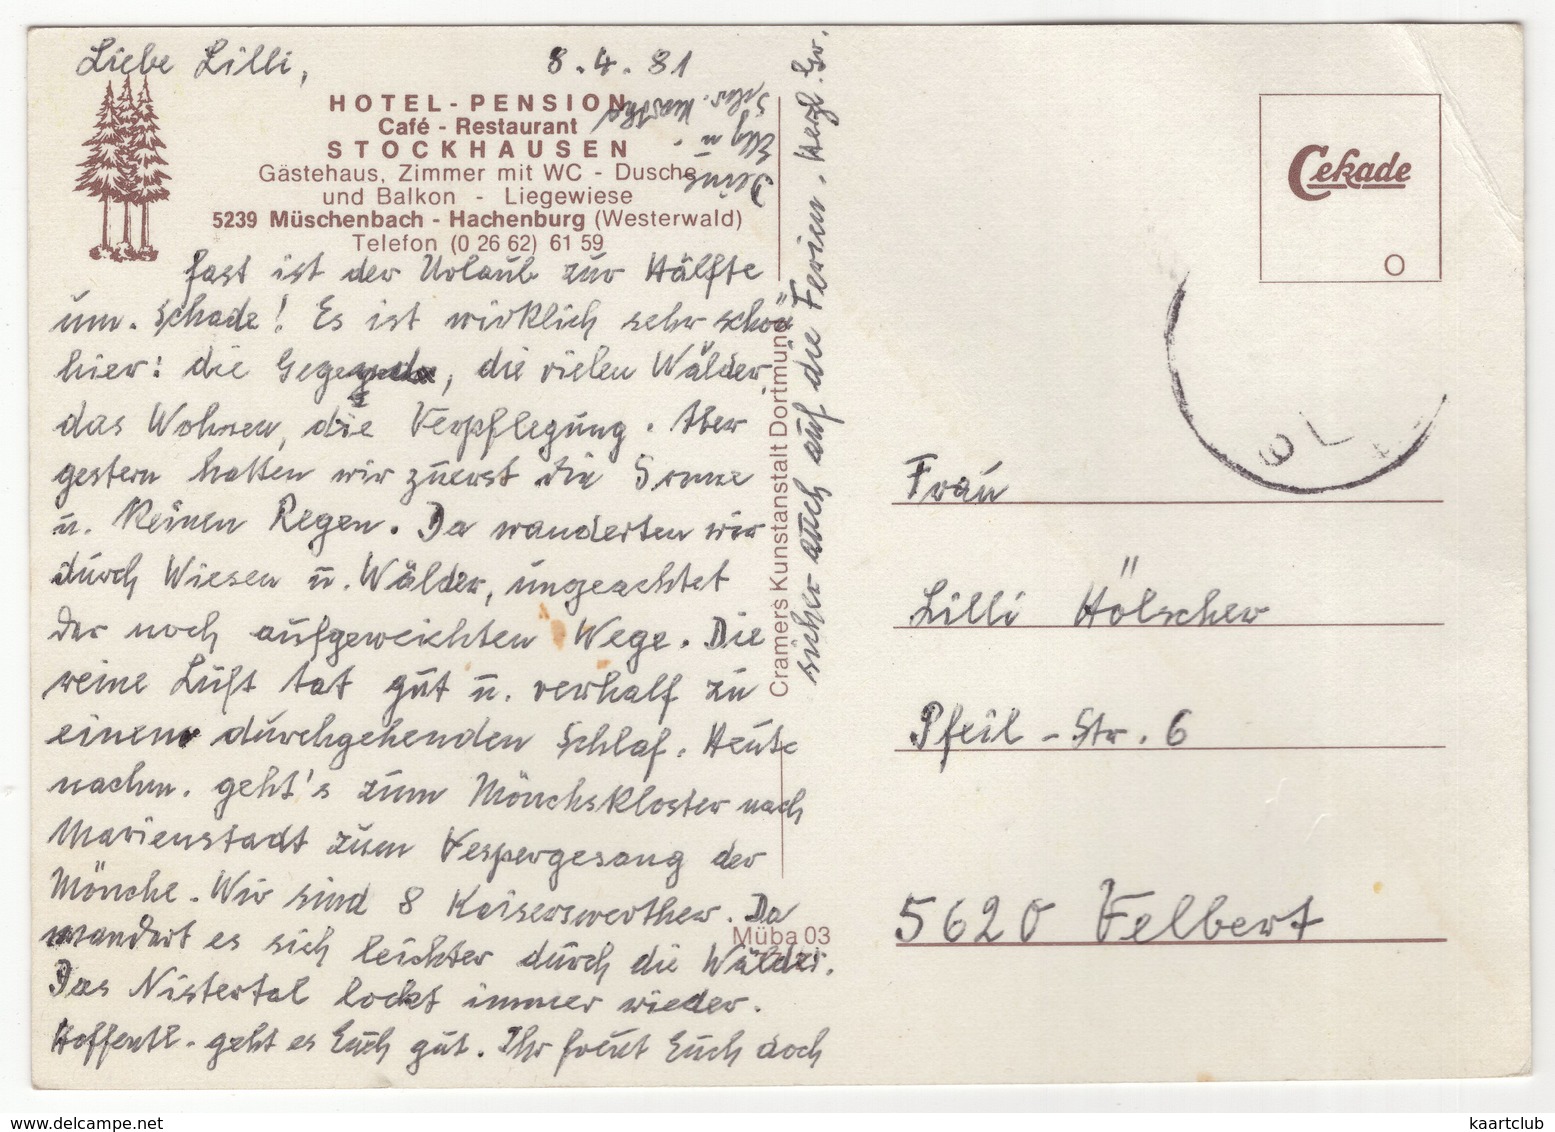 Liebe Lilli,
8.4.81
HOTEL-PENSION
Café - Restaurant
STOCKHAUSEN
Gästehaus, Zimmer mit WC - Dusche
und Balkon - Liegewiese
5239 Müschenbach - Hachenburg (Westerwald)
Telefon (0 26 62) 61 59
fast ist der Urlaub zur Hälfte
um. Schade! Es ist wirklich sehr schön
hier: die Gegend, die vielen Wälder,
das Wohnen, die Verpflegung. Aber
gestern hatten wir zuerst die Sonne
u. keinen Regen. Da wanderten wir
durch Wiesen u. Wälder, ungeachtet
der noch aufgeweichten Wege. Die
reine Luft tat gut u. verhalf zu
einem durchgehenden Schlaf. Heute
nachm. geht's zum Mönchskloster nach
Marienstadt zum Vespergesang der
Mönche. Wir sind 8 Kaiserswerther. Da
wandert es sich leichter durch die Wälder.
Das Nistertal lockt immer wieder.
Hoffentl. geht es Euch gut. Ihr freut Euch doch
sicher auch auf die Ferien. Herzl. Gr.
Elly u.
Cramers Kunstanstalt Dortmund
Müba 03
Cekade
O
Frau
Lilli Hölscher
Pfeil-Str. 6
5620 Velbert
kaartclub